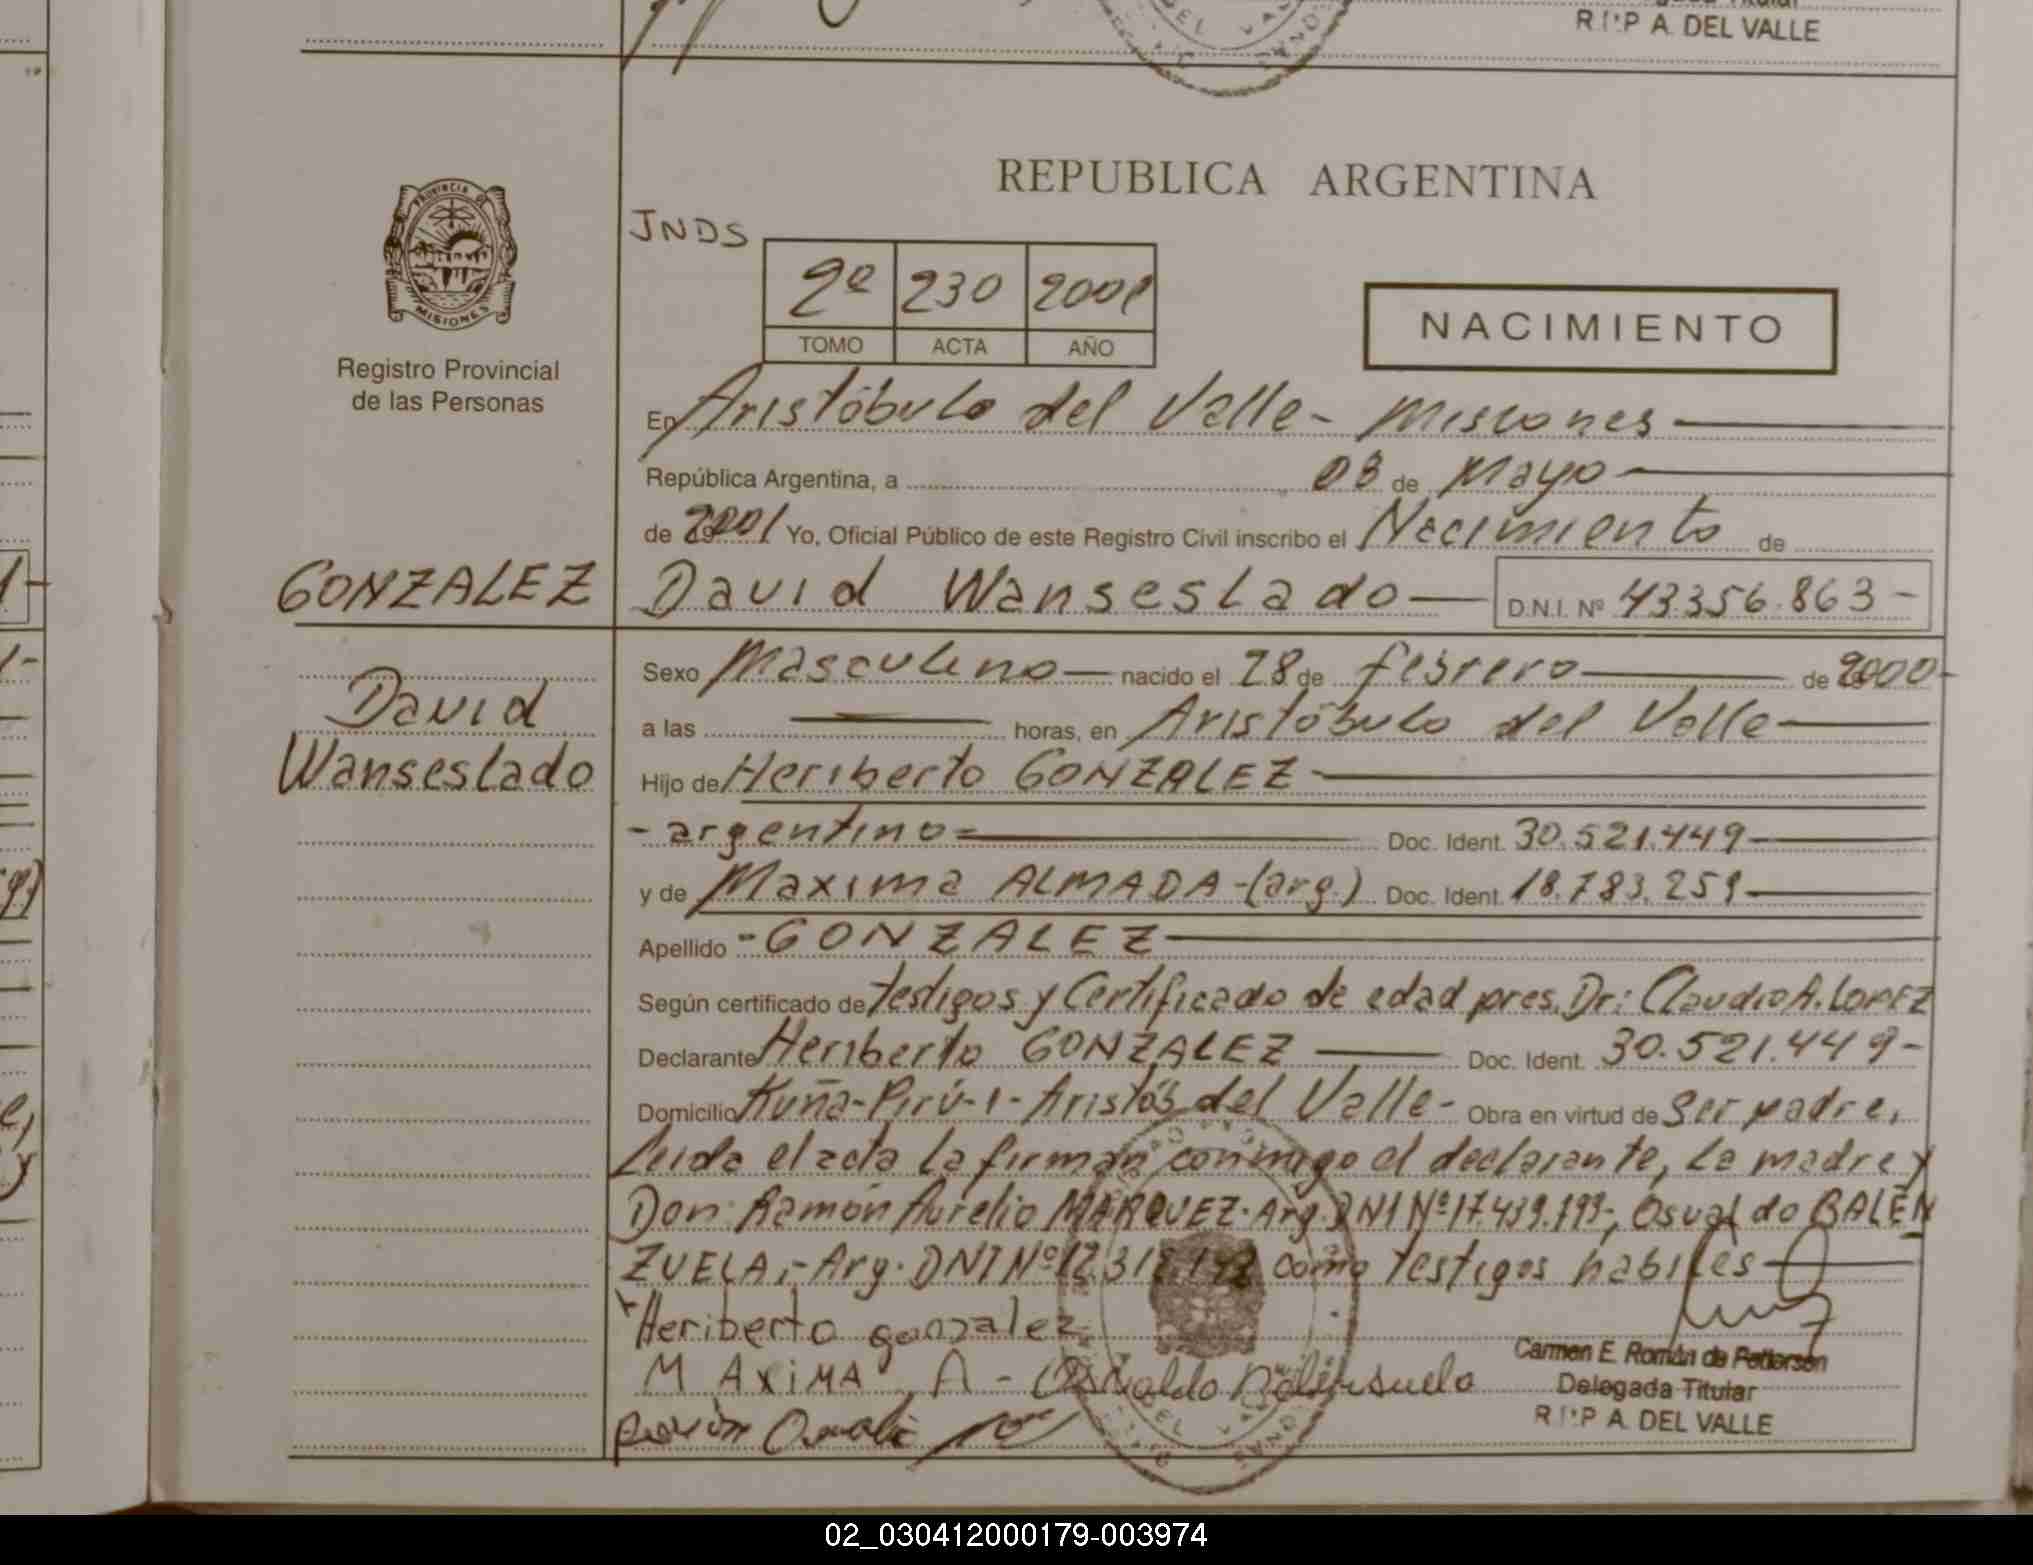 R.I.P A. DEL VALLE
PROVINCIA DE
MISIONES
Registro Provincial
de las Personas
REPUBLICA ARGENTINA
JNDS
2º 230 2001
TOMO ACTA AÑO
NACIMIENTO
En Aristóbulo del Valle - Misiones
República Argentina, a 03 de Mayo
de 2001 Yo, Oficial Público de este Registro Civil inscribo el Nacimiento de
GONZALEZ
David Wanseslado D.N.I. Nº 43.356.863-
David
Wanseslado
Sexo Masculino nacido el 28 de febrero de 2000-
a las horas, en Aristóbulo del Valle
Hijo de Heriberto GONZALEZ
- argentino - Doc. Ident. 30.521.449
y de Maxima ALMADA-(arg.) Doc. Ident. 18.783.259
Apellido -GONZALEZ
Según certificado de testigos y Certificado de edad pres. Dr: Claudio A. LOPEZ
Declarante Heriberto GONZALEZ Doc. Ident. 30.521.449-
Domicilio Kuña-Pirú-1-Aristób del Valle- Obra en virtud de ser padre,
Leida el acta la firman conmigo el declarante, la madre y
Don: Ramón Aurelio MARQUEZ-Arg. DNI Nº 17.439.199-, Osvaldo BALEN
ZUELA,-Arg. DNI Nº 12.318. como testigos habiles
Heriberto gonzalez
MAXIMA A - Osvaldo
Carmen E. Román de Petterson
Delegada Titular
R.I.P A. DEL VALLE
02_030412000179-003974